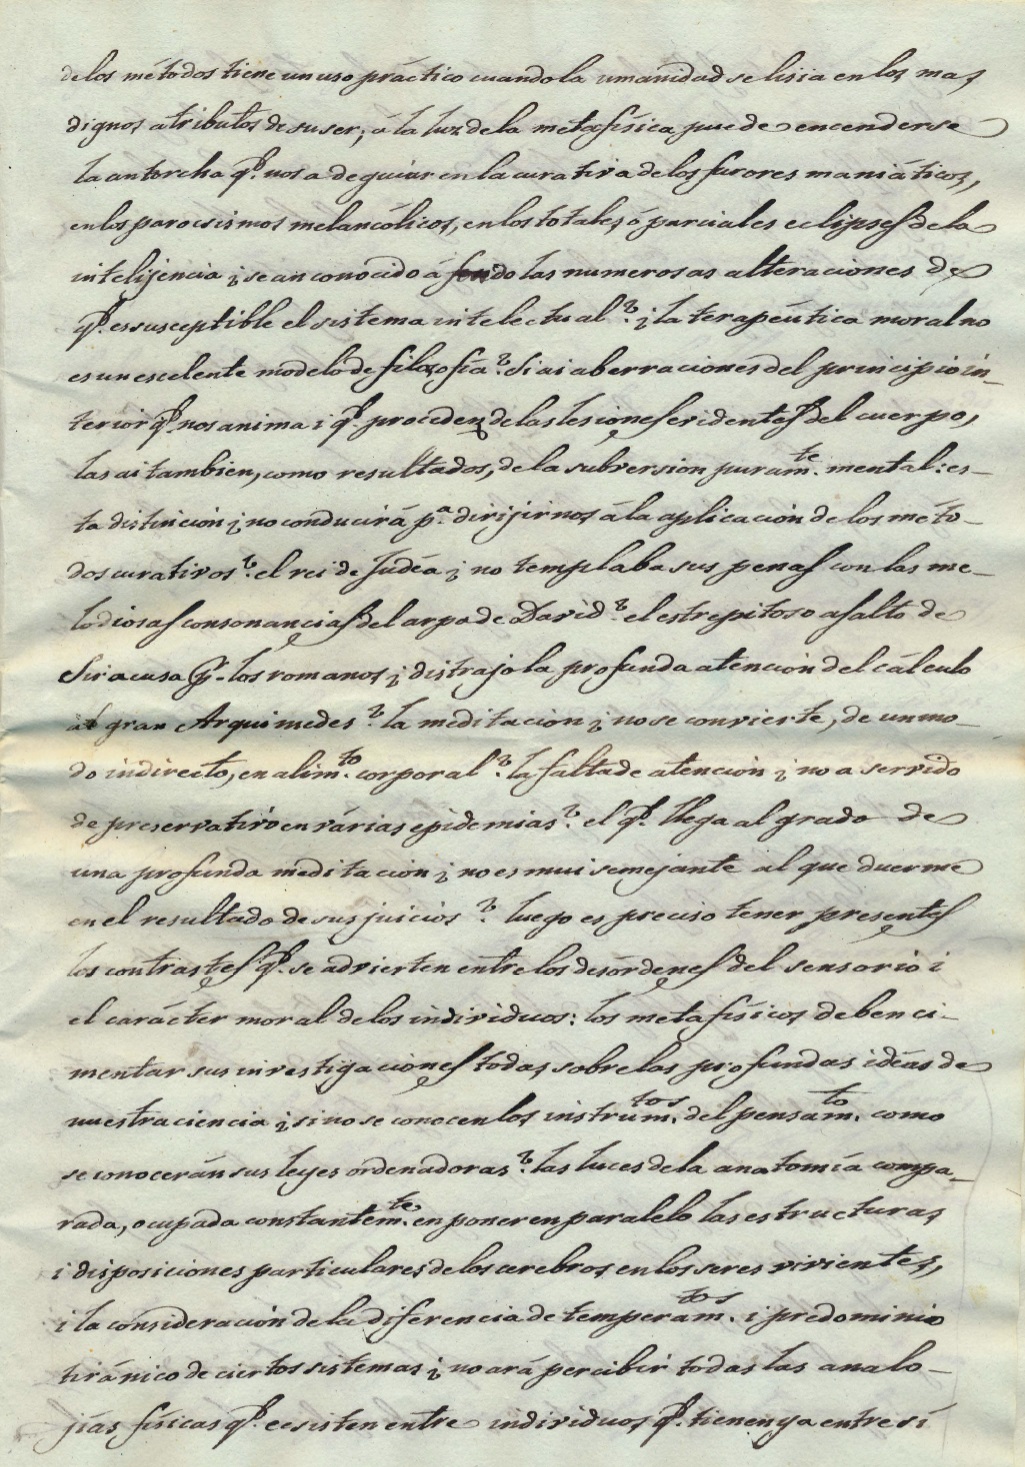 de los métodos tiene un uso práctico cuando la umanidad se lisia en los mas
dignos atributos de su ser; á la luz de la metafísica puede encenderse
la antorcha q.e nos a de guiar en la curativa de los furores maniáticos,
en los parocsismos melancólicos, en los totales ó parciales eclipses de la
intelijencia ¿se an conocido á fondo las numerosas alteraciones de
q.e es susceptible el sistema intelectual? ¿la terapéutica moral no
es un escelente modelo de filosofía? Si ai aberraciones del principio in-
terior q.e nos anima i q.e proceden de las lesiones evidentes del cuerpo,
las ai tambien, como resultados, de la subversion puram.te mental: es-
ta distincion ¿no conducirá p.a dirijirnos á la aplicacion de los méto-
dos curativos? el rei de Judéa ¿no templaba sus penas con las me-
lodiosas consonancias del arpa de David? el estrepitoso asalto de
Siracusa p.r los romanos ¿distrajo la profunda atencion del cálculo
al gran Arquimedes? la meditacion ¿no se convierte, de un mo-
do indirecto, en alim.to corporal? la falta de atencion ¿no a servido
de preservativo en várias epidemias? el q.e llega al grado de
una profunda meditacion ¿no es mui semejante al que duerme
en el resultado de sus juicios? luego es preciso tener presentes
los contrastes q.e se advierten entre los desórdenes del sensorio i
el carácter moral de los individuos: los metafísicos deben ci-
mentar sus investigaciones todas sobre las profundas idéas de
nuestra ciencia ¿si no se conocen los instrum.tos del pensam.to como
se conocerán sus leyes ordenadoras? las luces de la anatomía compa-
rada, ocupada constantem.te en poner en paralelo las estructuras
i disposiciones particulares de los cerebros en los seres vivientes,
i la consideracion de la diferencia de temperam.tos i predominio
tiránico de ciertos sistemas ¿no ará percibir todas las analo-
jías físicas q.e ecsisten entre individuos q.e tienen ya entre sí